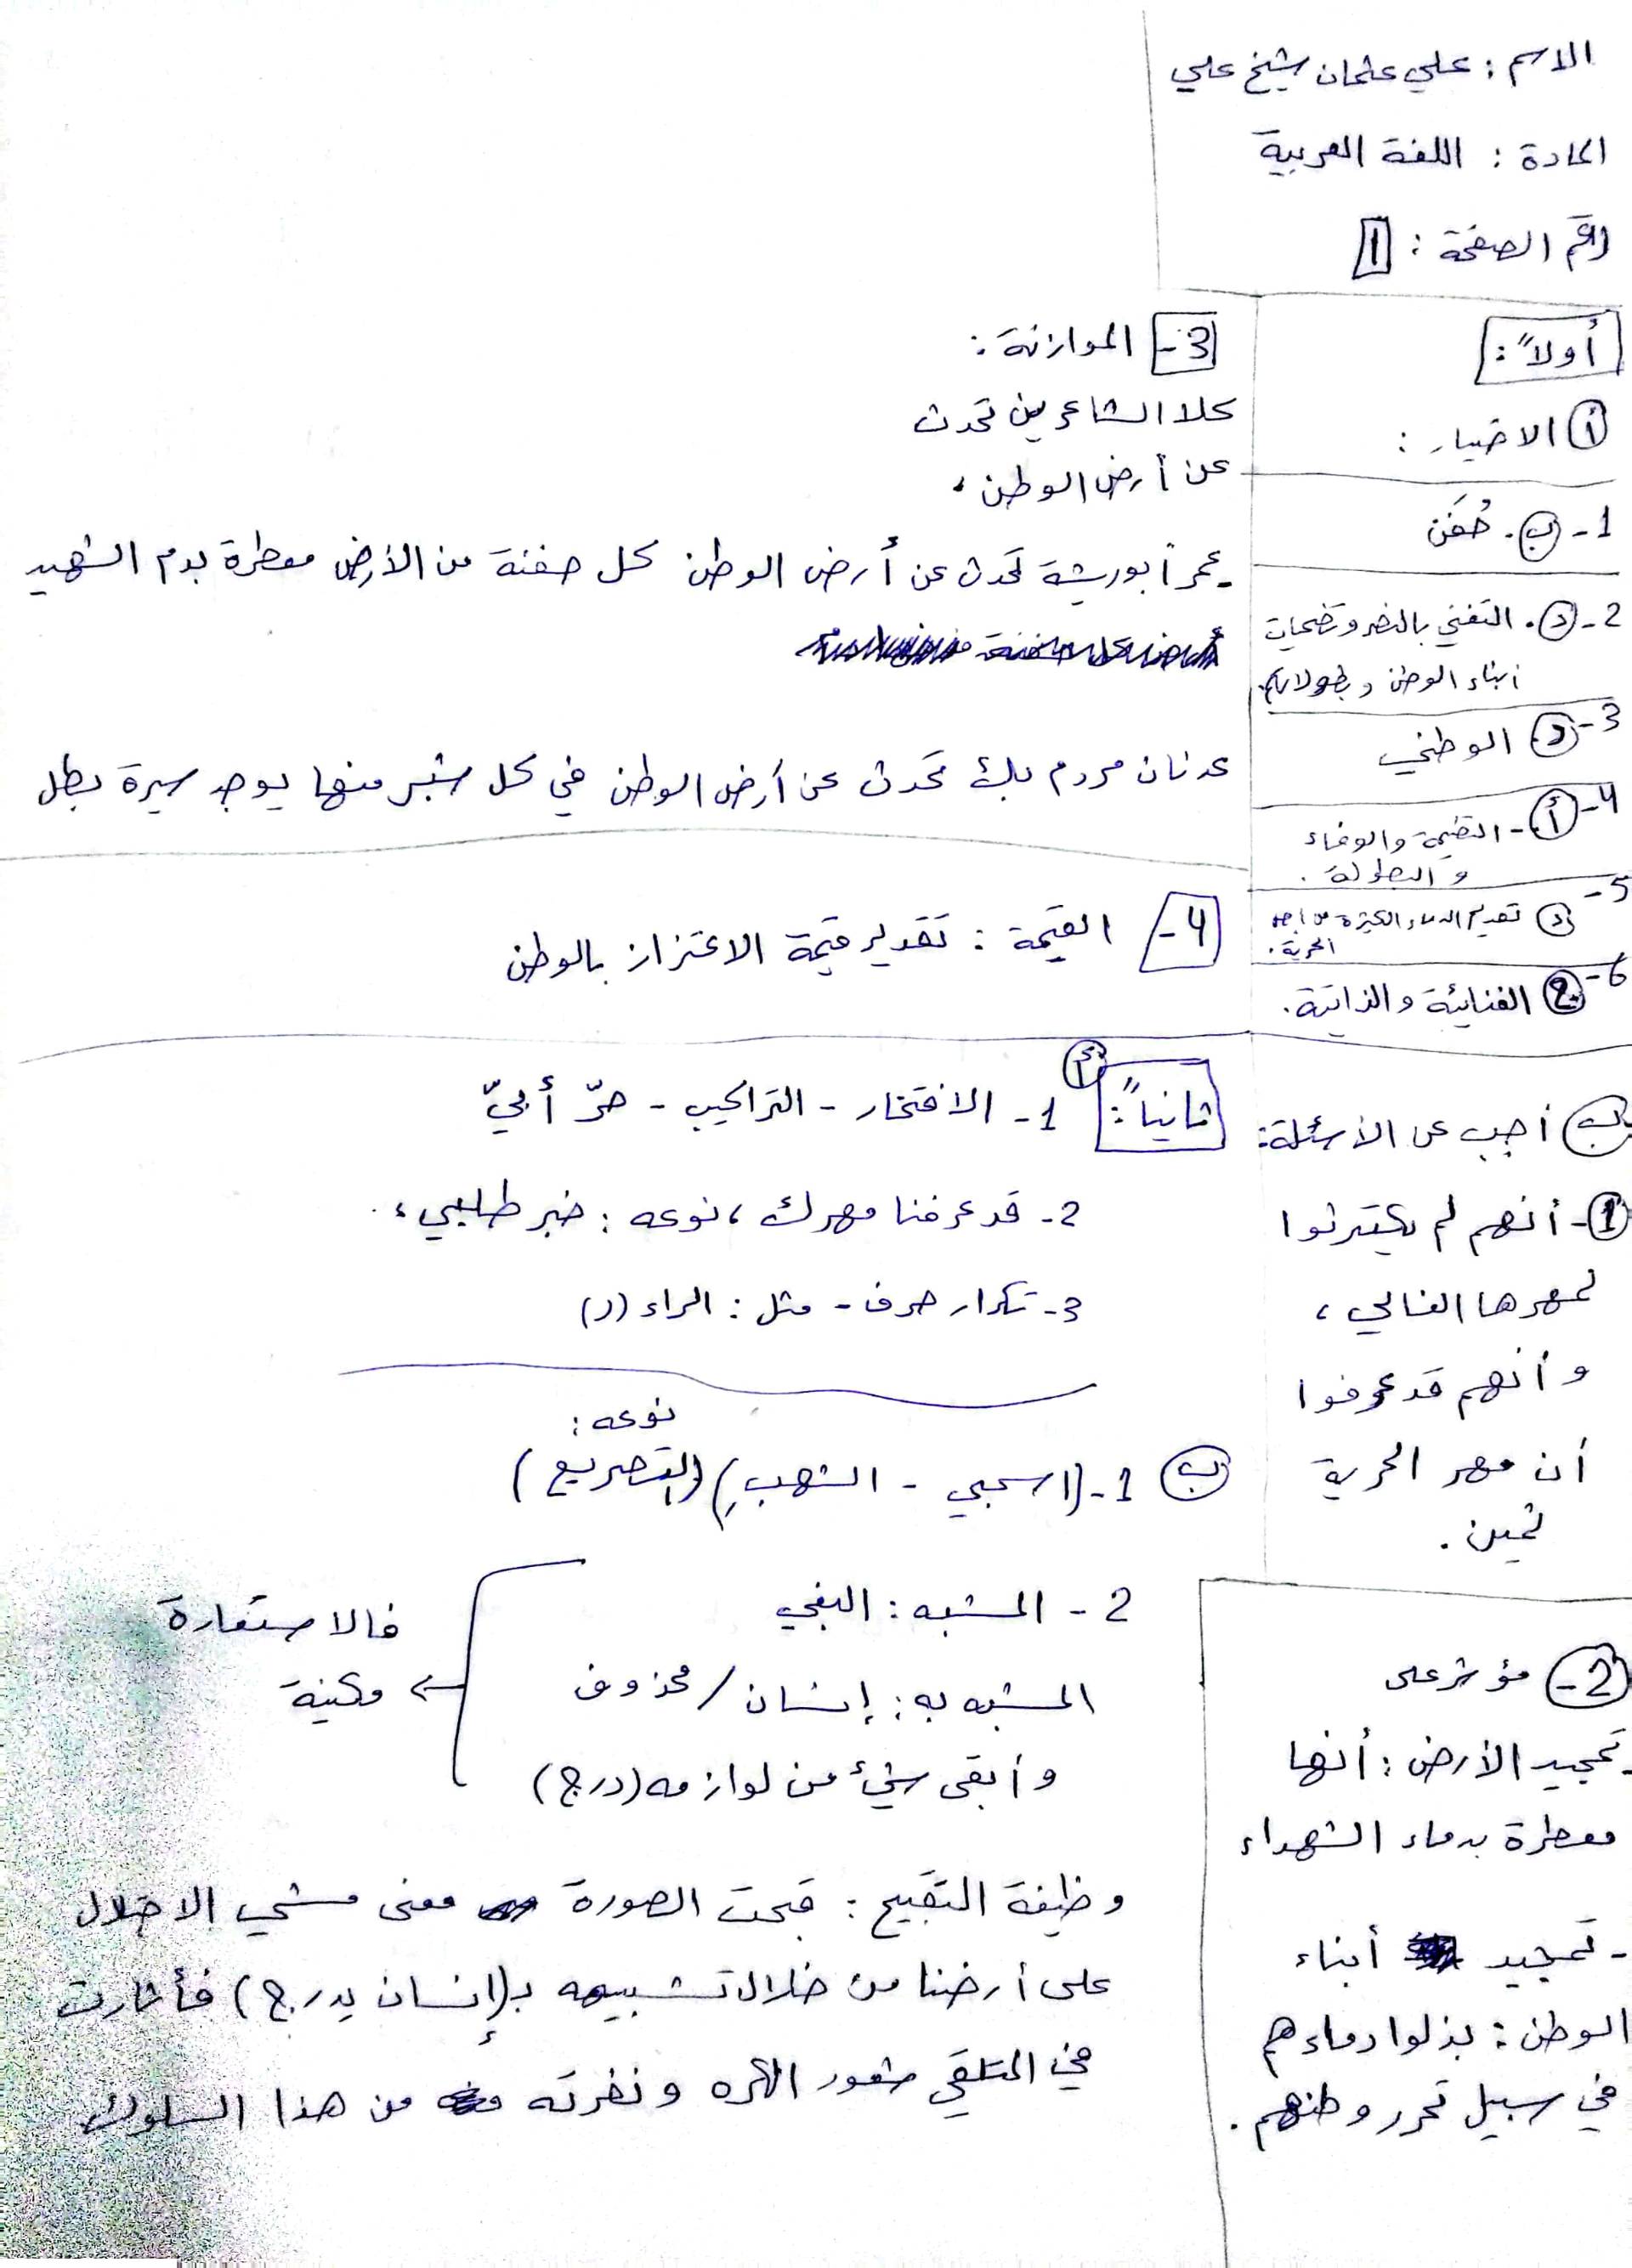 الاسم : علي عثمان شيخ علي
المادة : اللغة العربية
رقم الصفحة : 1
أولاً :
أ الاختيار :
1- ب. حُفَن
2- د. التغني بالنصر وتضحيات
أبناء الوطن وبطولاتهم.
3- د. الوطني
4- أ - التضحية والوفاء
والبطولة .
5- د تقديم الدماء الكثيرة من أجل
الحرية .
6- ج الغنائية والذاتية .
ب أجب عن الأسئلة :
1- أنهم لم يكترثوا
لمهرها الغالي ،
وأنهم قد عرفوا
أن مهر الحرية
ثمين .
2- مؤشر على
- تمجيد الأرض : أنها
معطرة بدماء الشهداء
- تمجيد أبناء
الوطن : بذلوا دماءهم
في سبيل تحرر وطنهم .
3- الموازنة :
كلا الشاعرين تحدث
عن أرض الوطن ،
- عمر أبو ريشة تحدث عن أرض الوطن كل حفنة من الأرض معطرة بدم الشهيد
عدنان مردم بك تحدث عن أرض الوطن في كل شبر منها يوجد سيرة بطل
4- القيمة : تقدير قيمة الاعتزاز بالوطن
ثانياً : أ 1- الافتخار - التراكيب - حرّ أبيّ
2- قد عرفنا مهرك ، نوعه : خبر طلبي ،
3- تكرار حرف - مثل : الراء (ر)
نوعه :
ب 1- (اسحبي - الشهبِ) (التصريع)
2- المشبه : البغي
المشبه به : إنسان / محذوف
وأبقى شيء من لوازمه (درج)
فالاستعارة
مكنية
وظيفة التقبيح : قبحت الصورة معنى مشي الاحتلال
على أرضنا من خلال تشبيهه بـ (إنسان يدرج) فأثارت
في المتلقي شعور الكره ونفرته من هذا السلوك